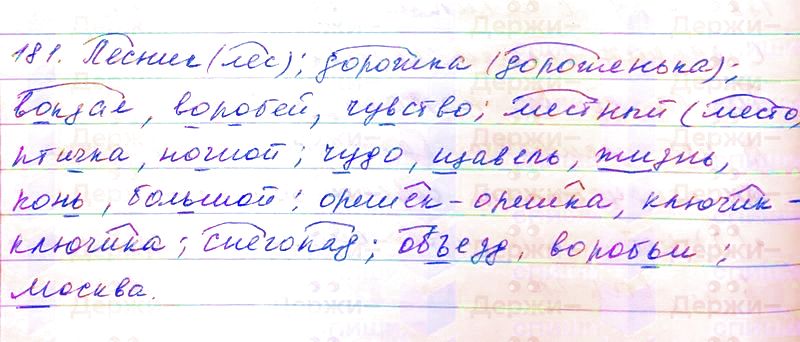 181. Лесник (лес); дорожка (дороженька);
вокзал, воробей, чувство; местный (место,
птичка, ночной; чудо, щавель, жизнь,
конь, большой; орешек - орешка, ключик -
ключика; снегопад; объезд, воробьи;
Москва.